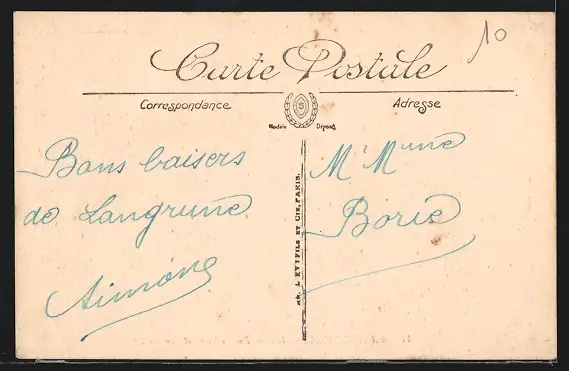 10
Carte Postale
Correspondance
Adresse
S
Modèle Déposé
Bons baisers
de Langrune
Simone
Mr Mme
Borie
L. L'EVY FILS ET CIE, PARIS.